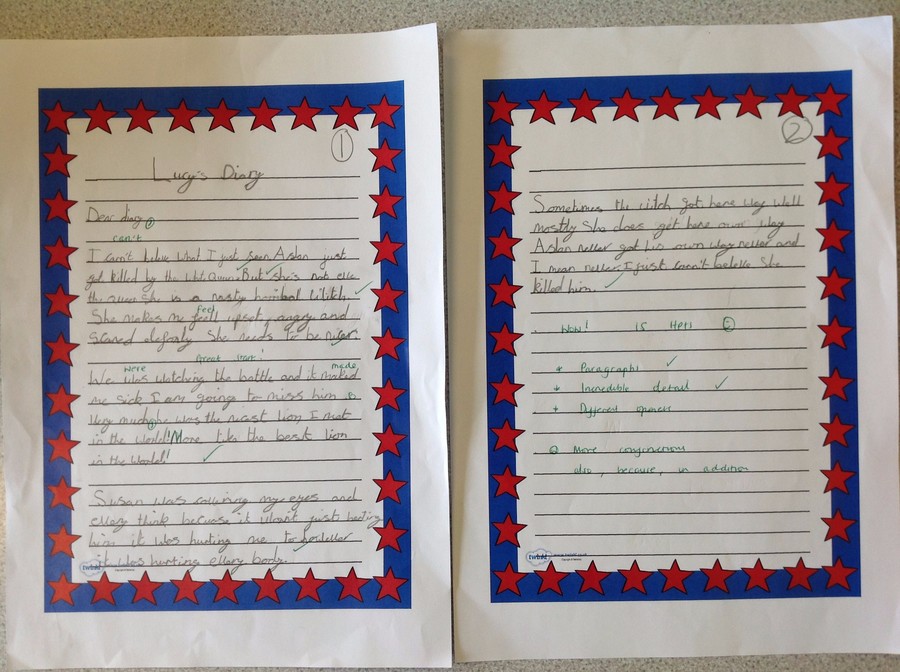 1
Lucy's Diary
Dear diary
can't
I carn't beleve what I just seen Aslan just
got killed by the White Queen. But she's not elle
the queen She is a nasty horribal Witch.
feel
She makes me feell upset, angry and
scared defently She needs to be nicer.
great start!
were made
We was watching the battle and it maked
me sick I am going to miss him so
Very much he was the nicest lion I met
in the world! More like the best lion
in the World!
Susan was my eyes and
every think because it wasnt just herting
him it was hurting me
it was hurting every body.
2
Sometimes the witch got here way Well
mostly She does get here own way
Aslan never got his own way never and
I mean never I just carn't beleve She
killed him.
Wow! 15 HPTs
* Paragraphs
* Incredible detail
* Different openers
More conjunctions
also, because, in addition
twinkl
twinkl